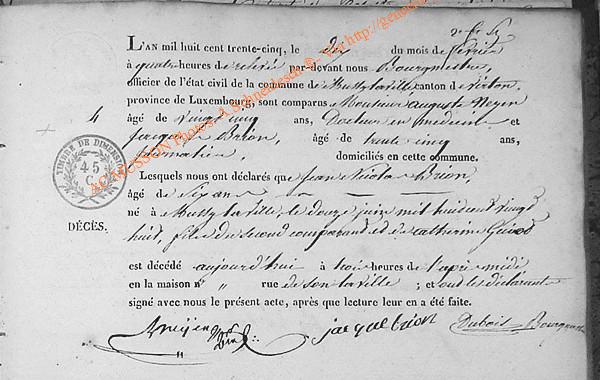 L'AN mil huit cent trente-cinq, le dix du mois de février
à quatre heures de relevée par-devant nous Bourgmestre,
officier de l'état civil de la commune de Mussy la ville canton de Virton,
province de Luxembourg, sont comparus Monsieur Auguste
4 âgé de vingt cinq ans, Docteur en médecine et
Jacques Brion, âgé de trente cinq ans,
domiciliés en cette commune.
Lesquels nous ont déclarés que Jean Nicolas Brion,
âgé de six ans
né à Mussy la ville le douze juin mil huit cent vingt
DÉCÈS.
huit, fils du second comparant et de Catherine
est décédé aujourd'hui à trois heures de l'après midi
en la maison n° " rue de ; et tous les déclarants
signé avec nous le présent acte, après que lecture leur en a été faite.
jacque brion Dubois Bourgmestre
TIMBRE DE DIMENSION
45
C.